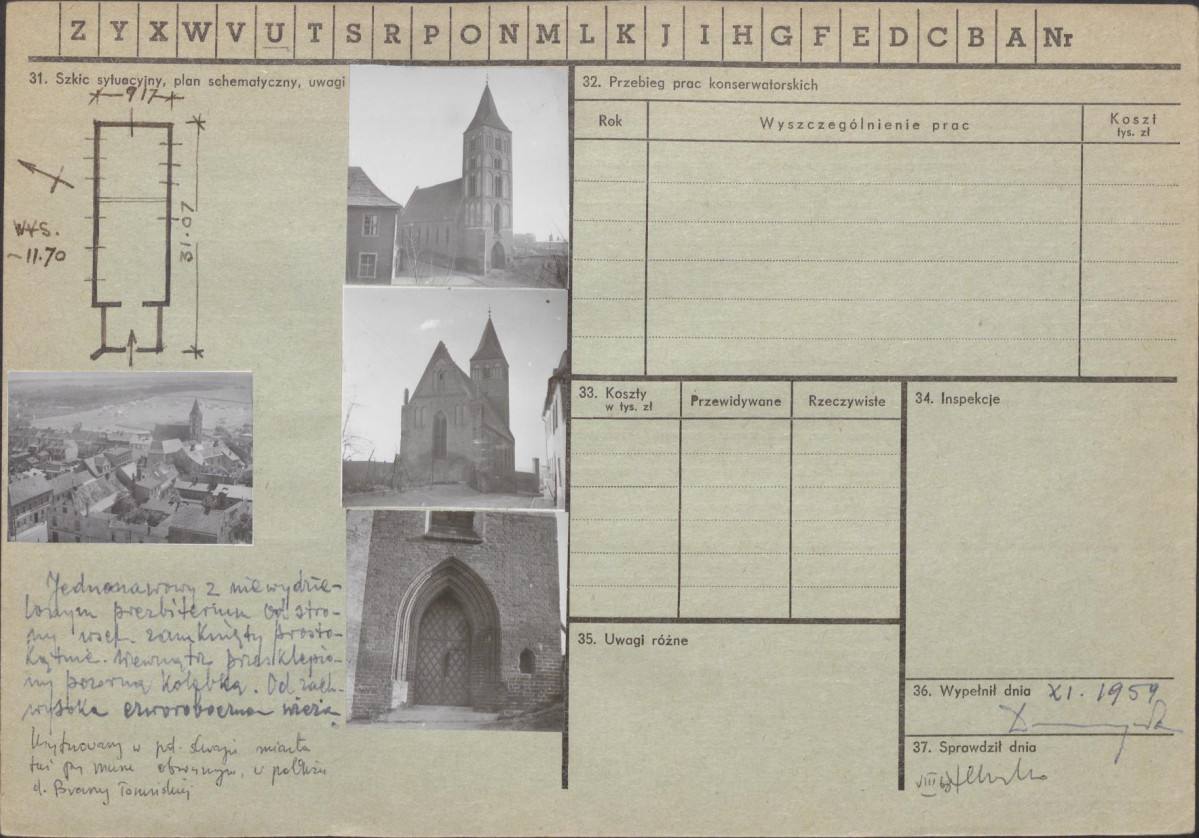 Z Y X W V U T S R P O N M L K J I H G F E D C B A Nr
31. Szkic sytuacyjny, plan schematyczny, uwagi
9,17
31.07
WYS.
~11.70
Jednonawowy z niewydzie-
lonym prezbiterium od stro-
ny wsch. zamknięty prosto-
kątnie. Wewnątrz przesklepio-
ny pozorną kolebką. Od zach.
wysoka czworoboczna wieża
Usytuowany w pd. miasta
tuż przy murze obronnym, w pobliżu
d. Bramy
32. Przebieg prac konserwatorskich
Rok
Wyszczególnienie prac
Koszt
tys. zł
33. Koszty
w tys. zł
Przewidywane
Rzeczywiste
34. Inspekcje
35. Uwagi różne
36. Wypełnił dnia XI. 1959
37. Sprawdził dnia
VIII